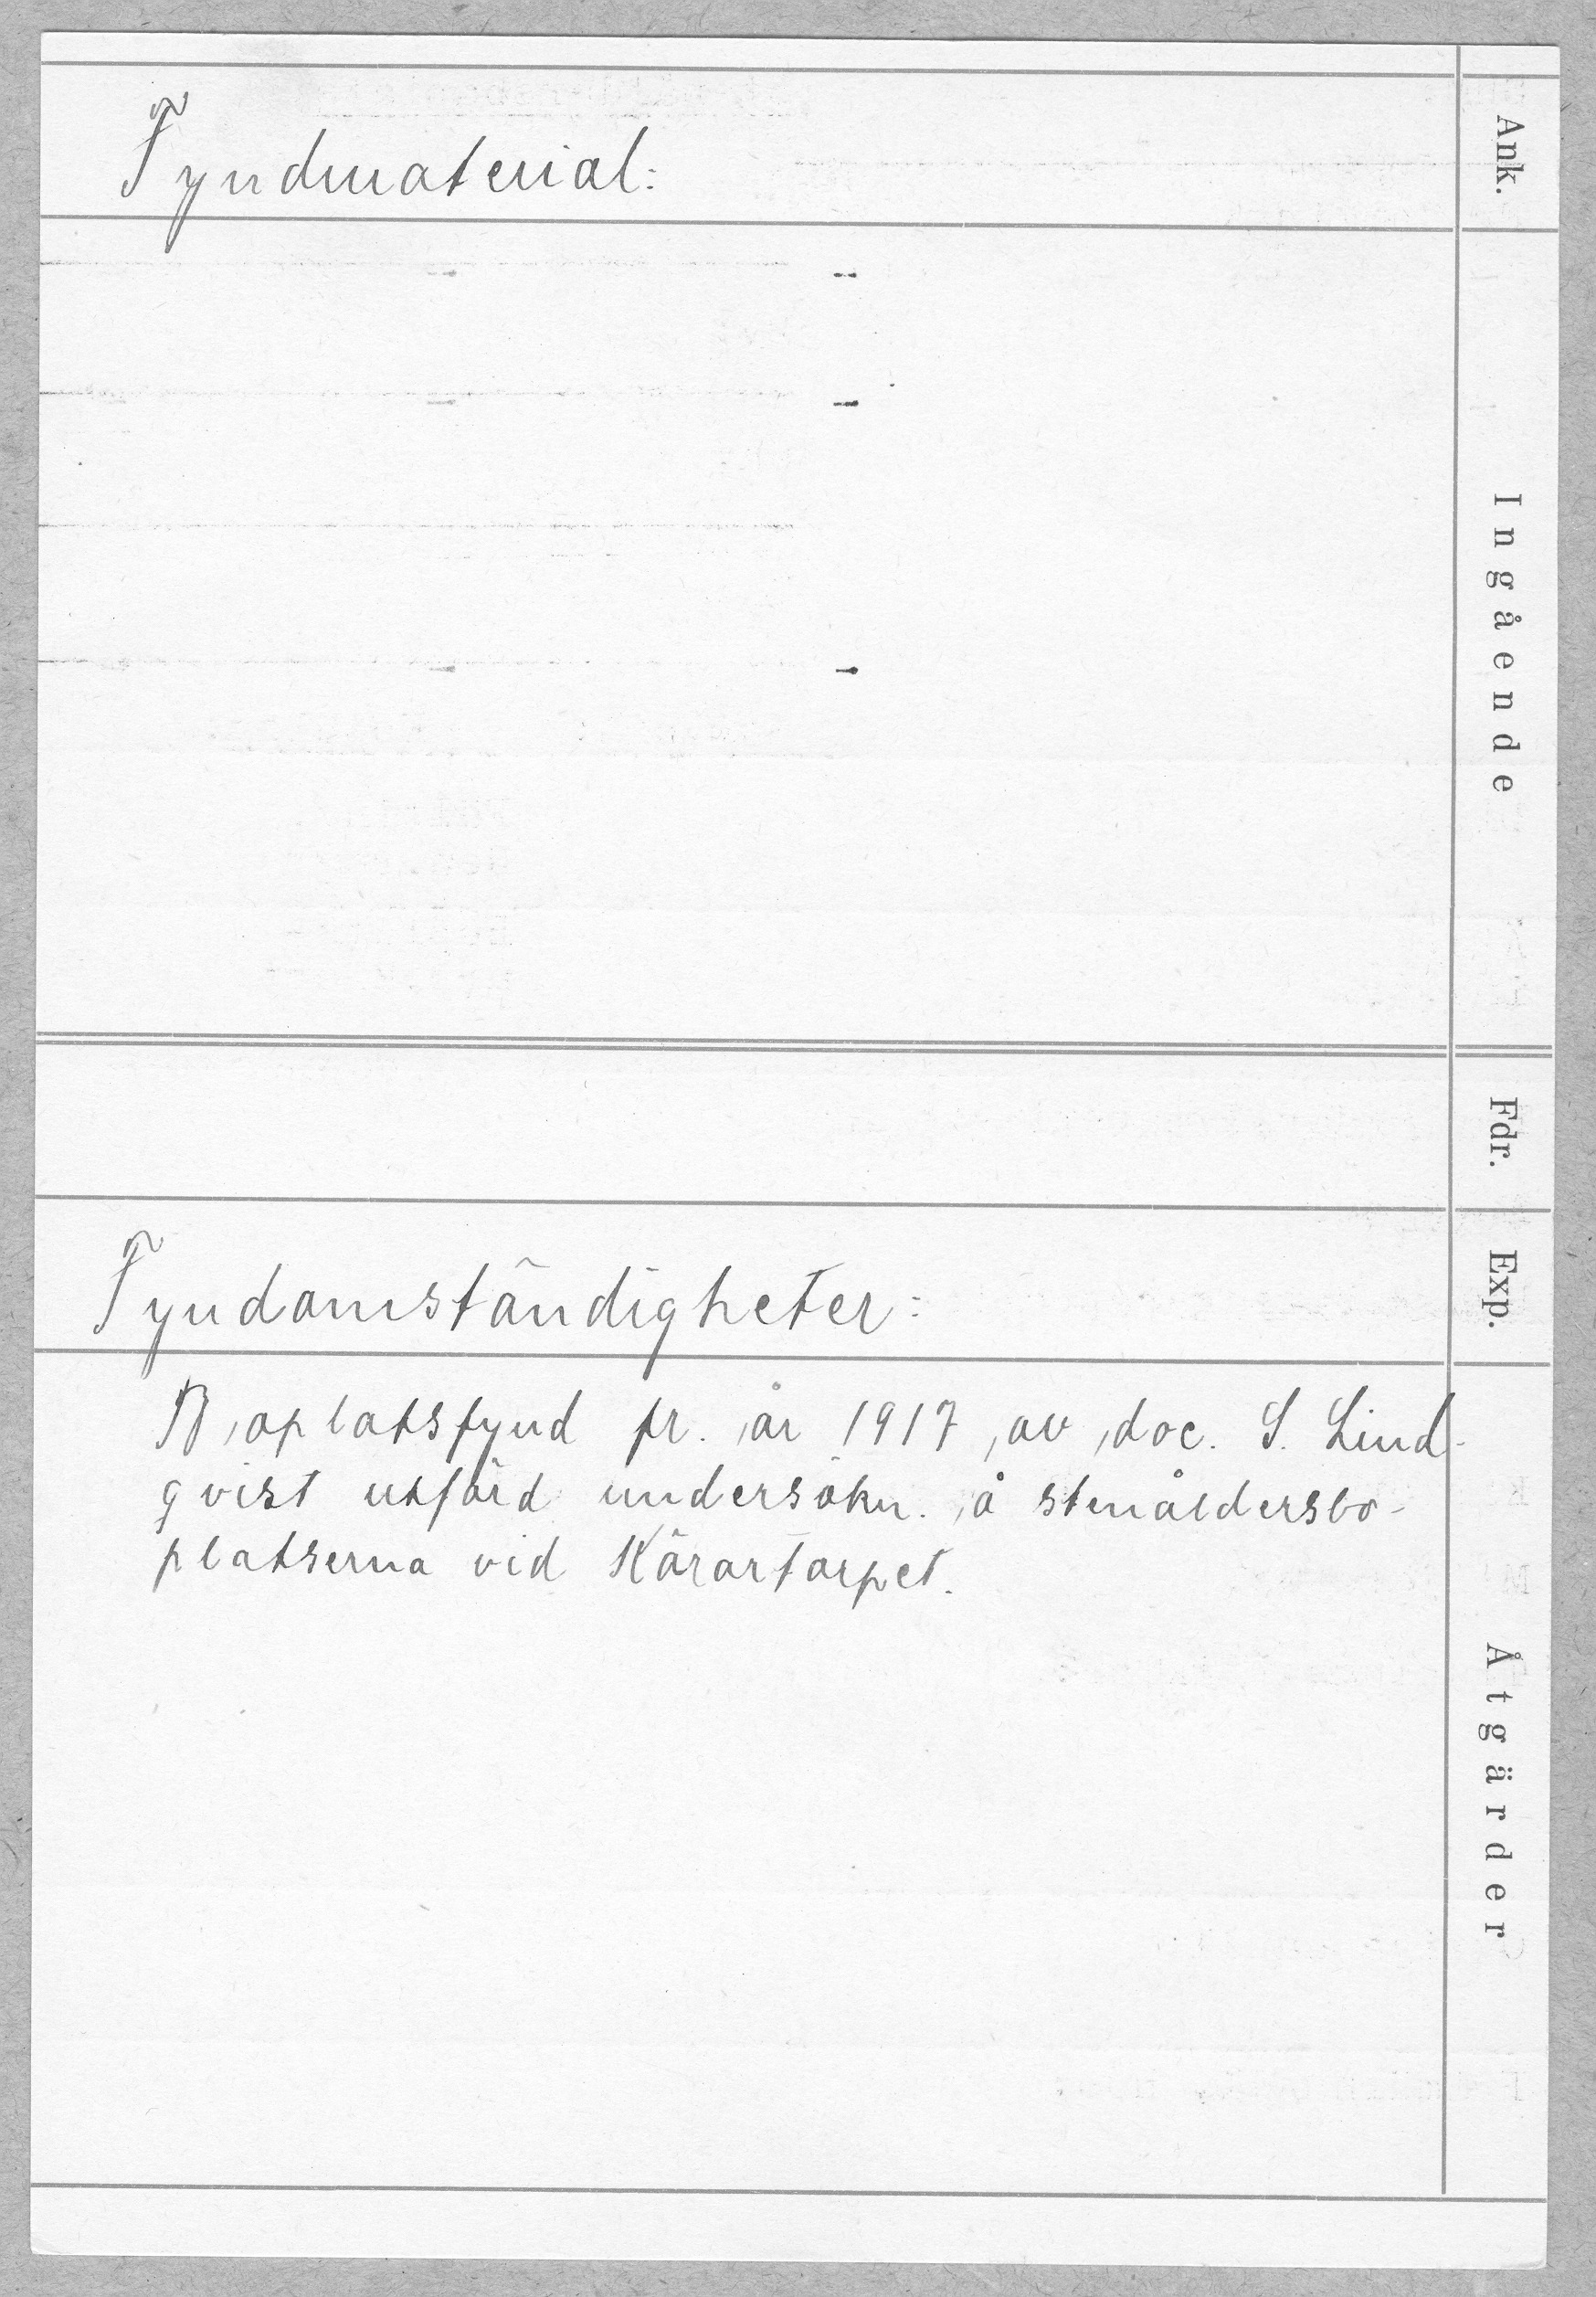 Fyndmaterial:
Fyndomständigheter:
Boplatsfynd fr. år 1917, av doc. S. Lind-
qvist utförd undersökn. å stenåldersbo-
platserna vid Körartorpet.
Ank.
Ingående
Fdr.
Exp.
Åtgärder